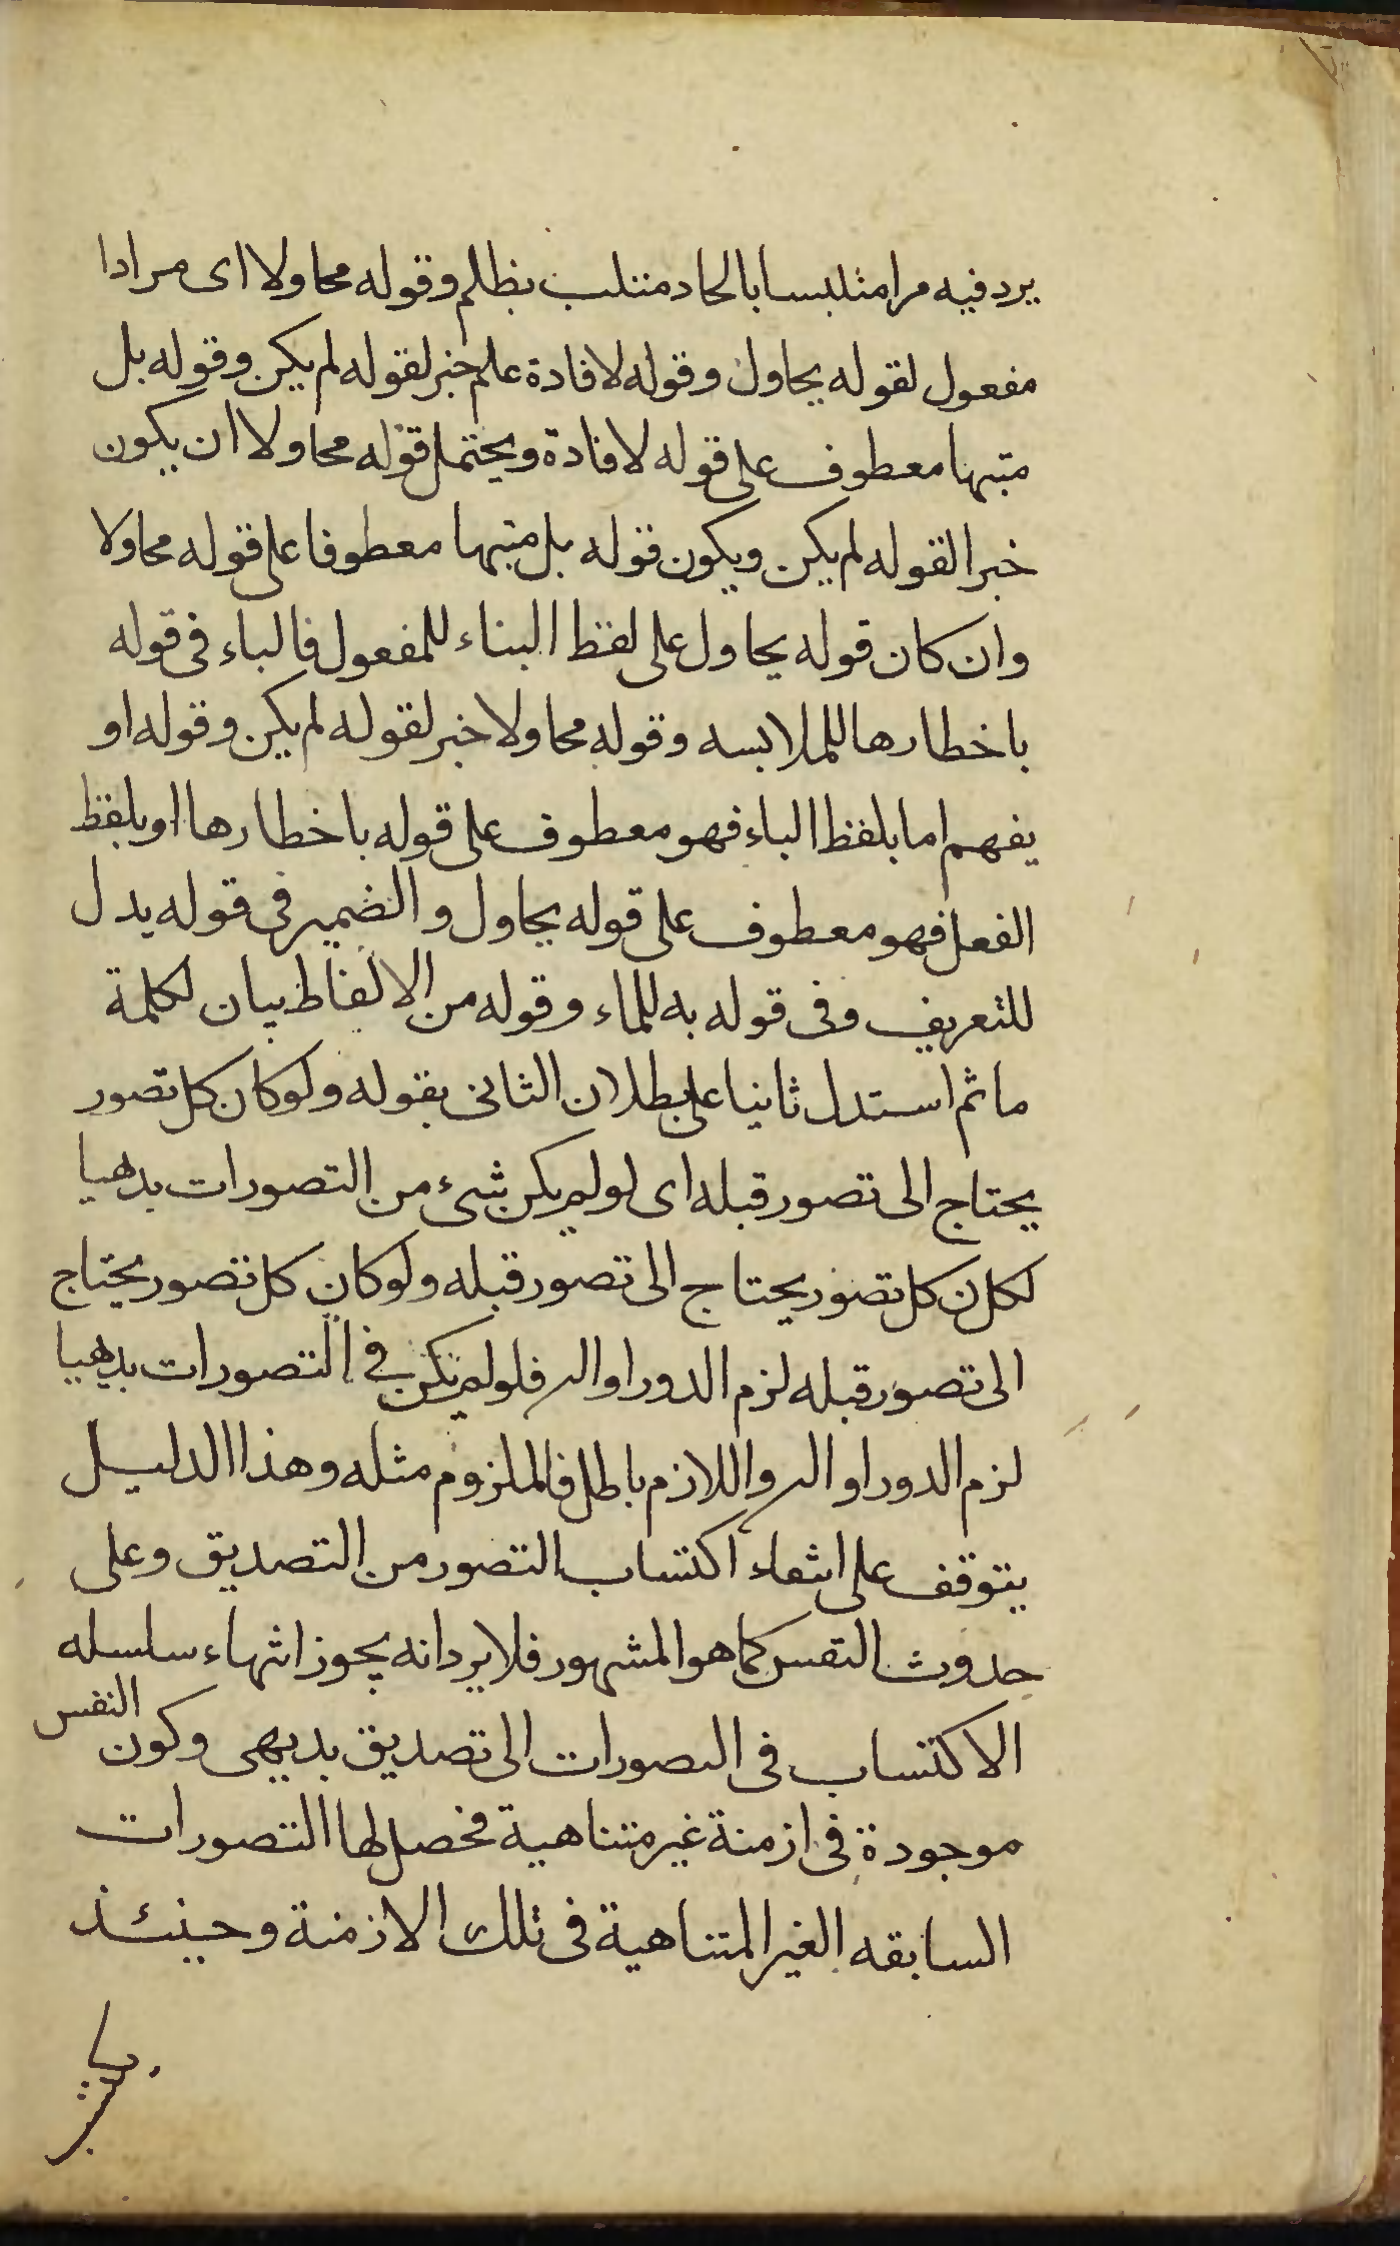 يرد فيه مرا مثلبسا بالحاد متلب بظلم وقوله محاولا اى مرادا
مفعول لقوله يحاول وقوله لافادة علم خبر لقوله لم يكن وقوله بل
متبها معطوف على قوله لافادة ويحتمل قوله محاولا ان يكون
خبرا لقوله لم يكن ويكون قوله بل متبها معطوفا على قوله محاولا
وان كان قوله يحاول على لفظ البناء للمفعول فالباء فى قوله
باخطارها للملابسه وقوله محاولا خبر لقوله لم يكن وقوله او
يفهم اما بلفظ الباء فهو معطوف على قوله باخطارها او بلفظ
الفعل فهو معطوف على قوله يحاول والضمير فى قوله يدل
للتعريف وفى قوله به للماء وقوله من الالفاظ بيان لكلمة
ما ثم استدل ثانيا على بطلان الثانى بقوله ولو كان كل تصور
يحتاج الى تصور قبله اى لو لم يكن شىء من التصورات بدهيا
لكان كل تصور يحتاج الى تصور قبله ولو كان كل تصور يحتاج
الى تصور قبله لزم الدور او الـ فلو لم تكن في التصورات بديهيا
لزم الدور او الـ واللازم باطل فالملزوم مثله وهذا الدليل
يتوقف على انتفاء اكتساب التصور من التصديق وعلى
حدوث النفس كما هو المشهور فلا يرد انه يجوز انتهاء سلسله
الاكتساب فى التصورات الى تصديق بديهى وكون النفس
موجودة فى ازمنة غير متناهية فخصل لها التصورات
السابقه الغير المتناهية فى تلك الازمنة وحينئذ